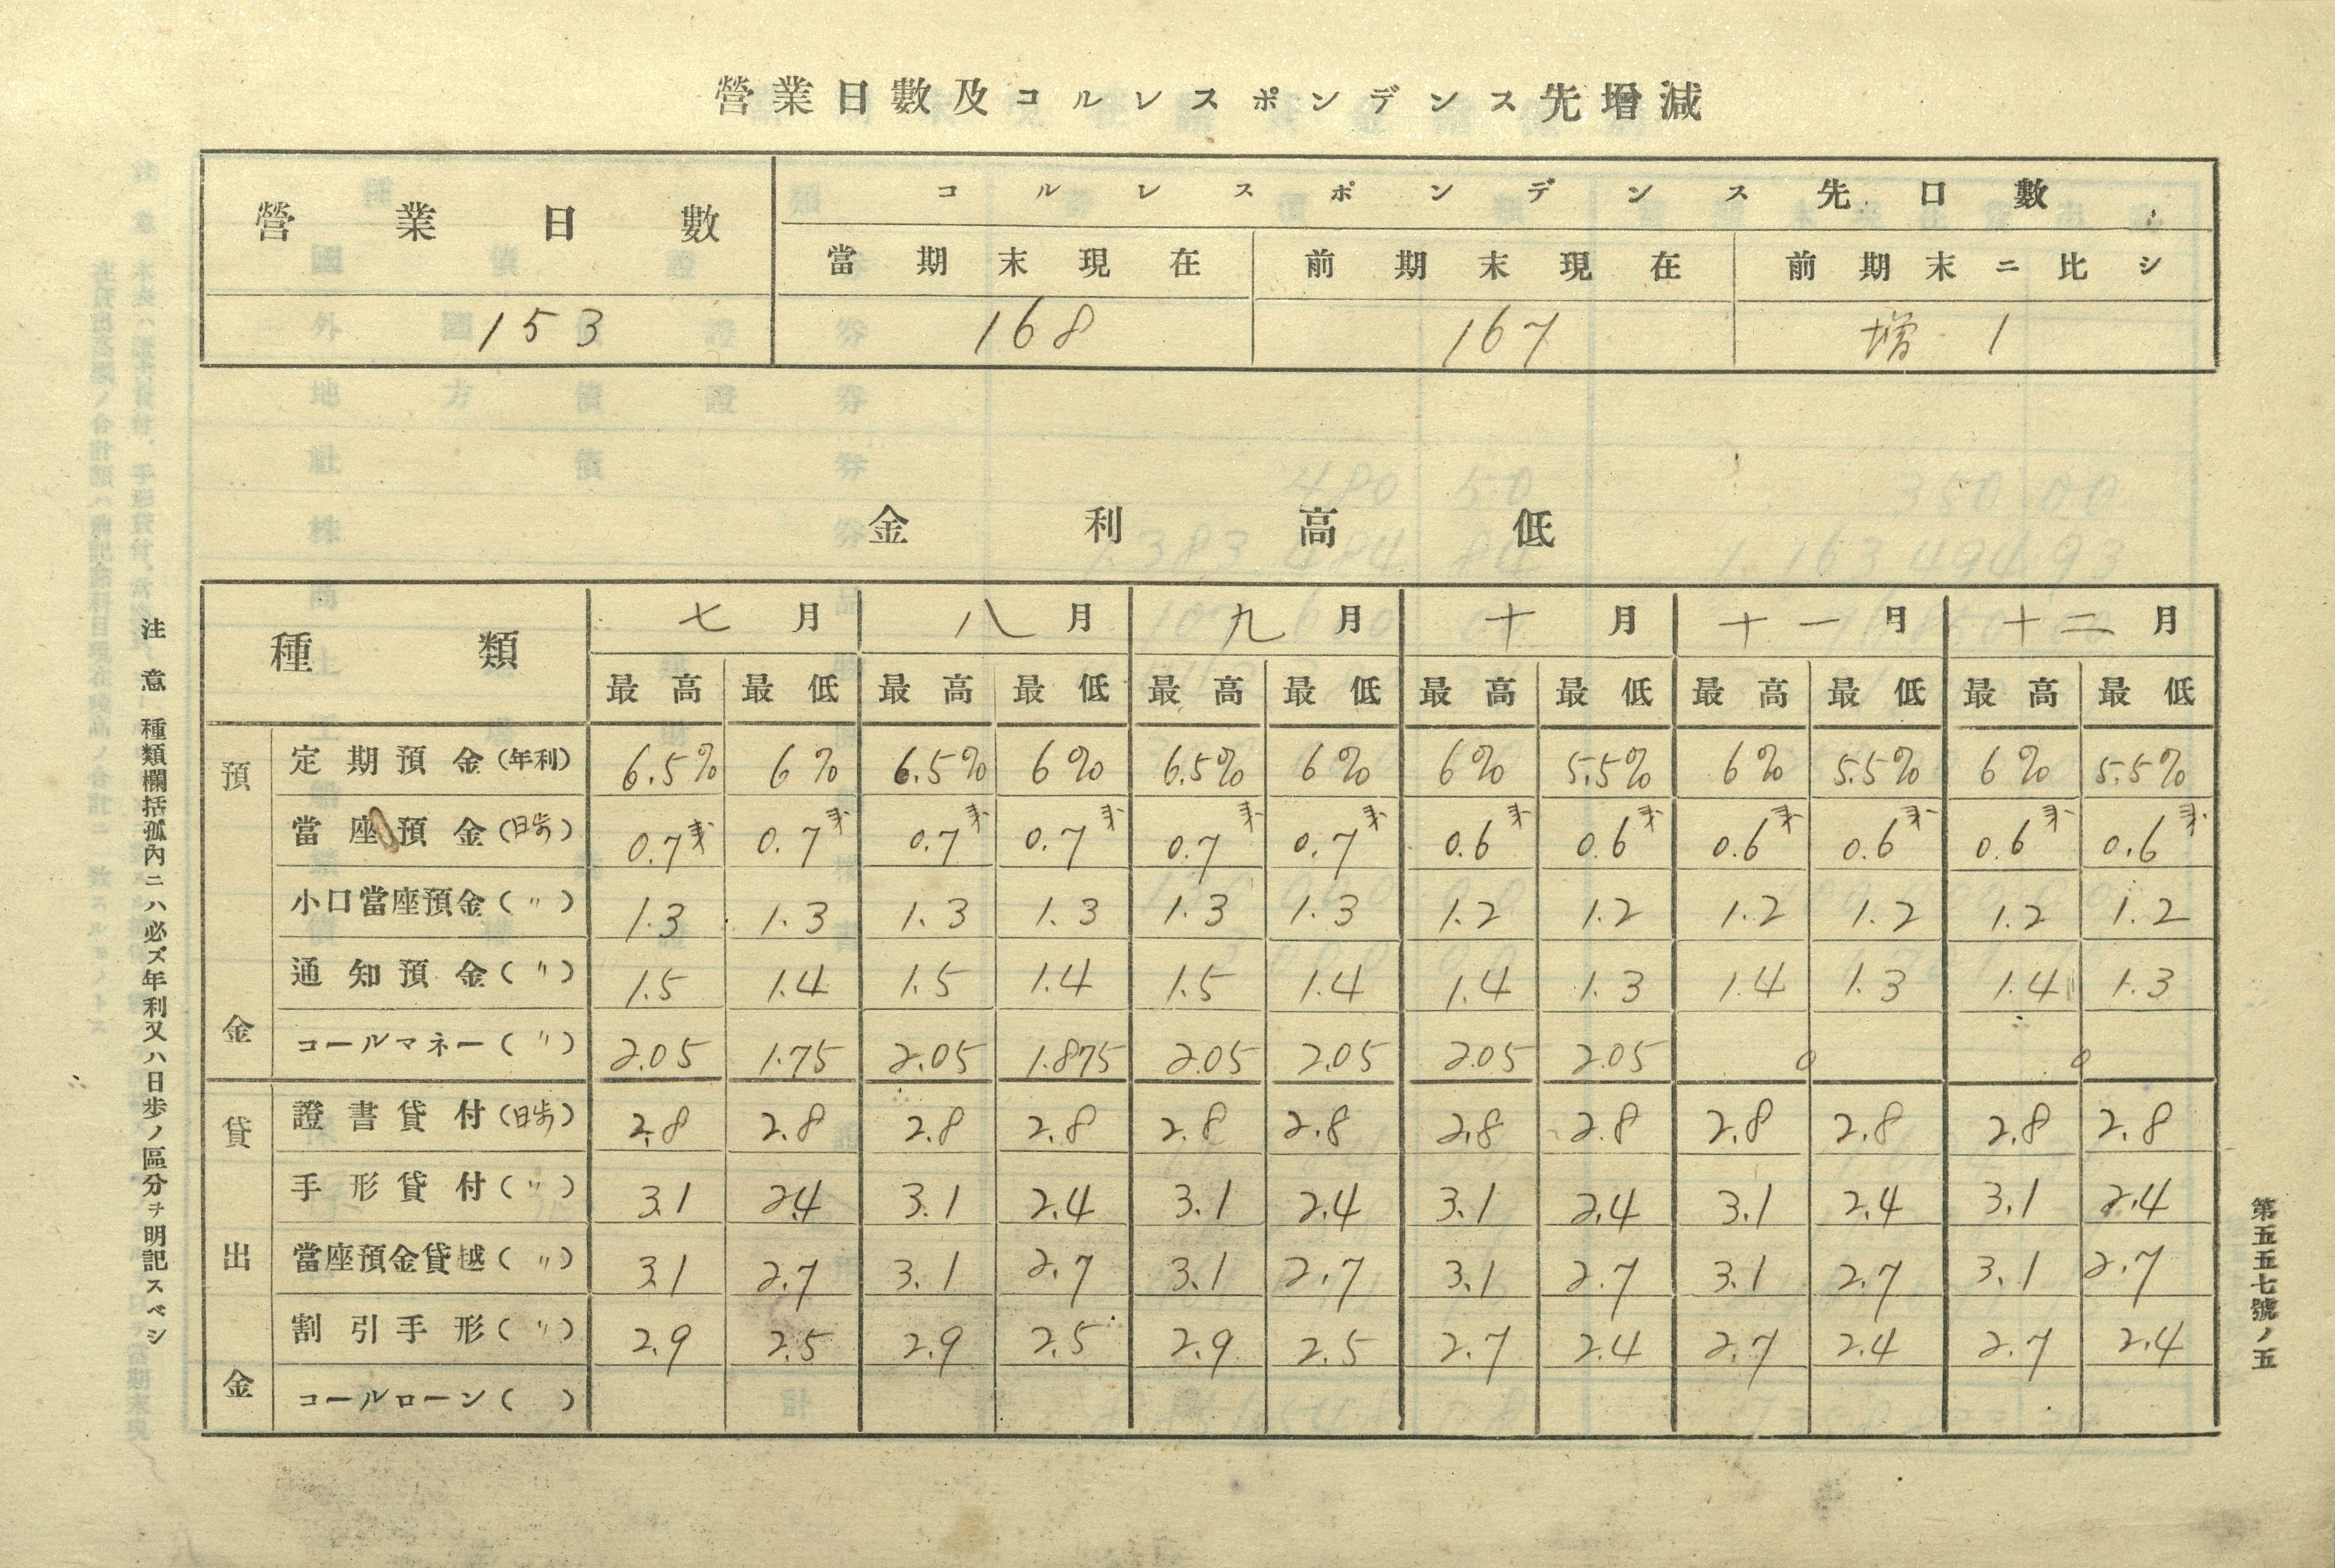 營業日數及コルレスポンデンス先增減
營業日數 コルレスポンデンス先口數
當期末現在 前期末現在 前期末ニ比シ
153 168 167 增 1
金利高低
種類 七月 八月 九月 十月 十一月 十二月
最高 最低 最高 最低 最高 最低 最高 最低 最高 最低 最高 最低
預金
定期預金(年利) 6.5% 6% 6.5% 6% 6.5% 6% 6% 5.5% 6% 5.5% 6% 5.5%
當座預金(日歩) 0.7 0.7 0.7 0.7 0.7 0.7 0.6 0.6 0.6 0.6 0.6 0.6
小口當座預金(〃) 1.3 1.3 1.3 1.3 1.3 1.3 1.2 1.2 1.2 1.2 1.2 1.2
通知預金(〃) 1.5 1.4 1.5 1.4 1.5 1.4 1.4 1.3 1.4 1.3 1.4 1.3
コールマネー(〃) 2.05 1.75 2.05 1.875 2.05 2.05 2.05 2.05 0 0
貸出金
證書貸付(日歩) 2.8 2.8 2.8 2.8 2.8 2.8 2.8 2.8 2.8 2.8 2.8 2.8
手形貸付(〃) 3.1 2.4 3.1 2.4 3.1 2.4 3.1 2.4 3.1 2.4 3.1 2.4
當座預金貸越(〃) 3.1 2.7 3.1 2.7 3.1 2.7 3.1 2.7 3.1 2.7 3.1 2.7
割引手形(〃) 2.9 2.5 2.9 2.5 2.9 2.5 2.7 2.4 2.7 2.4 2.7 2.4
コールローン( )
注意 種類欄括弧內ニハ必ズ年利又ハ日歩ノ區分ヲ明記スベシ
第五五七號ノ五